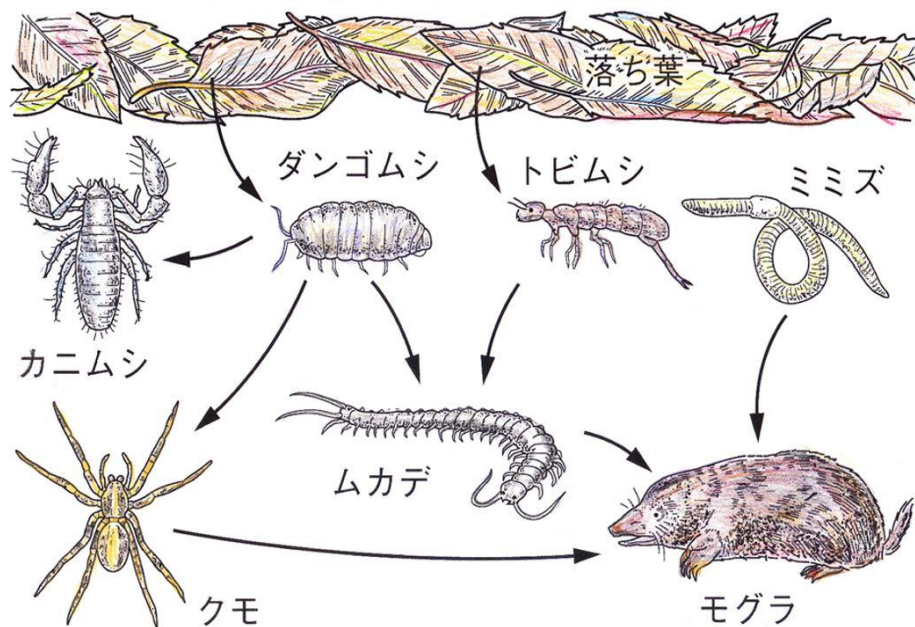 落ち葉
ダンゴムシ
トビムシ
ミミズ
カニムシ
ムカデ
クモ
モグラ